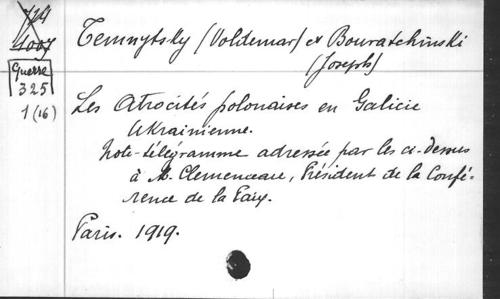 714
4007
Guerre
325
1 (16)
Temnytsky (Voldemar) et Bouratchinski
(Joseph)
Les Atrocités polonaises en Galicie
Ukrainienne.
Note-télégramme adressée par les ci-dessus
à M. Clemenceau, Président de la Confé-
rence de la Paix.
Paris. 1919.